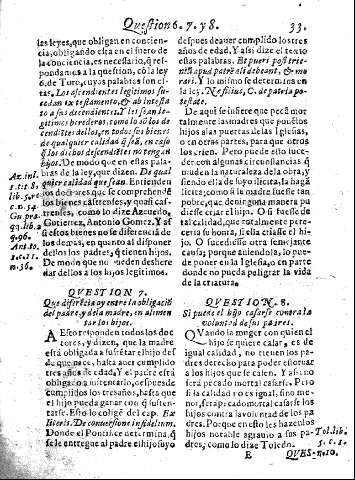 Question 6. 7. y 8.
33.
las leyes, que obligan en concien-
cia, obligando esta en el fuero de
la conciencia, es necesario, q̃ res-
pondamos a la question, cõ la ley
6. de Toro, cuyas palabras son es-
tas. Los ascendientes legitimos su-
cedan ex testamento, & ab intesta-
to a sus decendientes. Y les sean le-
gitimos herederos, como lo sõ los de-
cendiẽtes dellos, en todos sus bienes
de qualquier calidad q̃ seã, en caso
q̃ los dichos descendiẽtes no tengan
hijos. De modo que en estas pala-
bras de la ley, que dizen. De qual
quier calidad que sean. Entienden
los doctores que se comprehendẽ
los bienes castrenses, y quasi cas-
trenses, como lo dize Azeuedo,
Gutierrez, Antonio Gomez. Y as-
si estos bienes no se diferencia de
los demas, en quanto al disponer
dellos los padres, q̃ tienen hijos.
De modo que no pueden deshere
dar dellos a los hijos legitimos.
Az. in l.
1. tit. 8.
lib. 5. re-
cop.
Gu. pra.
qq. lib. 2
q. 96.
Ant. to.
1. c. 11.
n. 36.
QVESTION 7.
Que diferẽcia ay entre la obligaciõ
del padre, y de la madre, en alimẽ
tar los hijos.
A Esto responden todos los doc-
tores, y dizen, que la madre
està obligada a sustẽtar el hijo des
de que nace, hasta auer cumplido
tres años de edad, Y el padre està
obligado a sustentarlo, despues de
cumplidos los tres años, hasta que
el hijo pueda ganar con q̃ susten-
tarse. Esto lo colige del cap. Ex
literis. De conuersione infidelium.
Donde el Pontifice determina, q̃
se le entregue al padre el hijo suyo
despues de auer cumplido los tres
años de edad. Y assi dize el texto
estas palabras. Et pueri post trien-
niũ apud patrẽ ali debeant, & mo-
rari. Y lo mismo se determina en
la ley. Ne filius, C. de patria po-
testate.
De aqui se infiere que pecã mor
talmente las madres que ponẽ los
hijos a las puertas de las Iglesias,
o en otras partes, para que otros
los crien. Pero puede esto suce-
der con algunas circunstancias q̃
muden la naturaleza de la obra, y
siendo ella de suyo ilicita, la hagã
licita; como si la madre fuesse tan
pobre, que de ninguna manera pu
diesse criar el hijo. O si fuesse de
tal calidad, que totalmente pere-
ceria su honra, si ella criasse el hi-
jo. O sucediesse otra semejante
causa; porque auiendola, lo pue-
de poner en la Iglesia, o en parte
donde no pueda peligrar la vida
de la criatura.
QVESTION. 8.
Si puede el hijo casarse contra la
voluntad de sus padres.
QVando la muger con quien el
hijo se quiere casar, es de
igual calidad, no tienen los pa-
dres derecho para poder estoruar
a los hijos que se casen. Y assi no
serà pecado mortal casarse. Pero
si la calidad no es igual, sino me-
nor, serà pecado mortal casarse los
hijos contra la voluntad de los pa
dres. Porque en esto les hazen los
hijos notable agrauio a sus pa-
dres, como lo dize Toledo.
Tol. lib.
5. c. 1.
n. 10.
E
QVES-